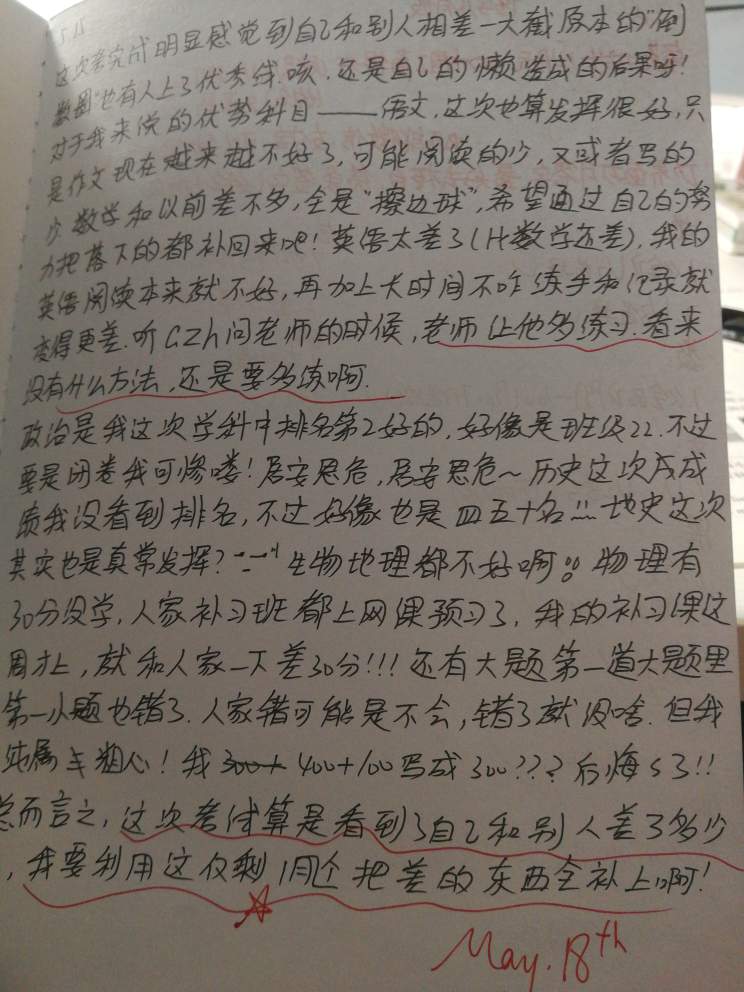 5.15
这次考完成明显感觉到自己和别人相差一大截原本的"倒
数圈"也有人上了优秀线.咳.还是自己的懒造成的后果呀!
对于我来说的优势科目——语文,这次也算发挥很好,只
是作文现在越来越不好了,可能阅读的少,又或者写的
少.数学和以前差不多,全是"擦边球",希望通过自己的努
力把落下的都补回来吧!英语太差了(比数学还差),我的
英语阅读本来就不好,再加上长时间不咋练手和记录就
变得更差.听czh问老师的时候,老师让他多练习.看来
没有什么方法,还是要多练啊.
政治是我这次学科中排名第2好的,好像是班级22.不过
要是闭卷我可惨喽!居安思危,居安思危~历史这次成成
绩我没看到排名,不过好像也是四五十名!!!地史这次
其实也是真常发挥?生物地理都不好啊!!物理有
30分没学,人家补习班都上网课预习了,我的补习课这
周才上,就和人家一下差30分!!!还有大题第一道大题里
第一小题也错了.人家错可能是不会,错了就没啥.但我
纯属粗心!我300+400+100写成300???后悔s了!!
总而言之,这次考试算是看到了自己和别人差了多少
,我要利用这仅剩1个月把差的东西全补上啊!
May.18th